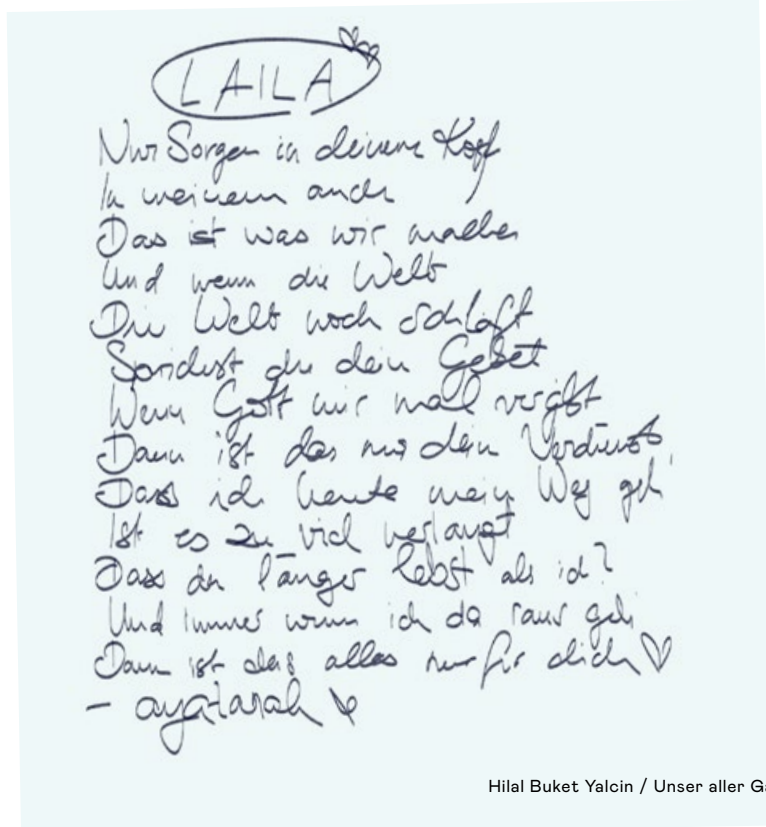 LAILA
Nur Sorgen in deinem Kopf
In meinem auch
Das ist was wir machen
Und wenn die Welt
Die Welt noch schläft
Sprichst du dein Gebet
Wenn Gott mir mal vergibt
Dann ist das nur dein Verdienst
Dass ich heute mein Weg geh'
Ist es zu viel verlangt
Dass du länger lebst als ich?
Und immer wenn ich da raus geh
Dann ist das alles nur für dich
Hilal Buket Yalcin / Unser aller Ga